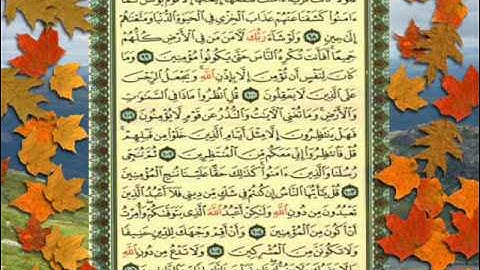 ءَامَنُوا۟ كَشَفْنَا عَنْهُمْ عَذَابَ ٱلْخِزْىِ فِى ٱلْحَيَوٰةِ ٱلدُّنْيَا وَمَتَّعْنَٰهُمْ
إِلَىٰ حِينٍ ٩٨ وَلَوْ شَآءَ رَبُّكَ لَءَامَنَ مَن فِى ٱلْأَرْضِ كُلُّهُمْ
جَمِيعًا أَفَأَنتَ تُكْرِهُ ٱلنَّاسَ حَتَّىٰ يَكُونُوا۟ مُؤْمِنِينَ ٩٩ وَمَا
كَانَ لِنَفْسٍ أَن تُؤْمِنَ إِلَّا بِإِذْنِ ٱللَّهِ وَيَجْعَلُ ٱلرِّجْسَ
عَلَى ٱلَّذِينَ لَا يَعْقِلُونَ ١٠٠ قُلِ ٱنظُرُوا۟ مَاذَا فِى ٱلسَّمَٰوَٰتِ
وَٱلْأَرْضِ وَمَا تُغْنِى ٱلْءَايَٰتُ وَٱلنُّذُرُ عَن قَوْمٍ لَّا يُؤْمِنُونَ ١٠١
فَهَلْ يَنتَظِرُونَ إِلَّا مِثْلَ أَيَّامِ ٱلَّذِينَ خَلَوْا۟ مِن قَبْلِهِمْ
قُلْ فَٱنتَظِرُوٓا۟ إِنِّى مَعَكُم مِّنَ ٱلْمُنتَظِرِينَ ١٠٢ ثُمَّ نُنَجِّى
رُسُلَنَا وَٱلَّذِينَ ءَامَنُوا۟ كَذَٰلِكَ حَقًّا عَلَيْنَا نُنجِ ٱلْمُؤْمِنِينَ
١٠٣ قُلْ يَٰٓأَيُّهَا ٱلنَّاسُ إِن كُنتُمْ فِى شَكٍّ مِّن دِينِى فَلَآ أَعْبُدُ ٱلَّذِينَ
تَعْبُدُونَ مِن دُونِ ٱللَّهِ وَلَٰكِنْ أَعْبُدُ ٱللَّهَ ٱلَّذِى يَتَوَفَّىٰكُمْ وَأُمِرْتُ
أَنْ أَكُونَ مِنَ ٱلْمُؤْمِنِينَ ١٠٤ وَأَنْ أَقِمْ وَجْهَكَ لِلدِّينِ حَنِيفًا
وَلَا تَكُونَنَّ مِنَ ٱلْمُشْرِكِينَ ١٠٥ وَلَا تَدْعُ مِن دُونِ ٱللَّهِ